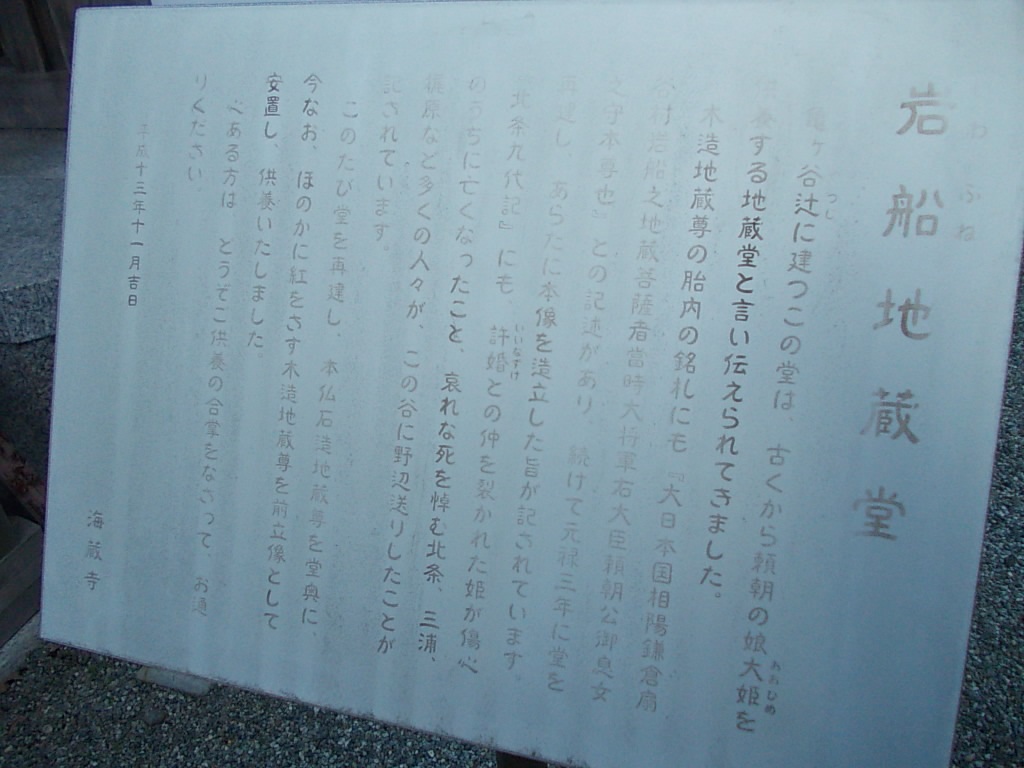 岩船地蔵堂
亀ヶ谷辻に建つこの堂は、古くから頼朝の娘大姫を
供養する地蔵堂と言い伝えられてきました。
木造地蔵尊の胎内の銘札にも『大日本国相陽鎌倉扇
谷村岩船之地蔵菩薩者當時大将軍右大臣頼朝公御息女
之守本尊也』との記述があり、続けて元禄三年に堂を
再建し、あらたに本像を造立した旨が記されています。
『北条九代記』にも、許婚との仲を裂かれた姫が傷心
のうちに亡くなったこと、哀れな死を悼む北条、三浦、
梶原など多くの人々が、この谷に野辺送りしたことが
記されています。
このたび堂を再建し、本仏石造地蔵尊を堂奥に、
今なお、ほのかに紅をさす木造地蔵尊を前立像として
安置し、供養いたしました。
心ある方は どうぞご供養の合掌をなさって、お通
りください。
平成十三年十一月吉日
海蔵寺